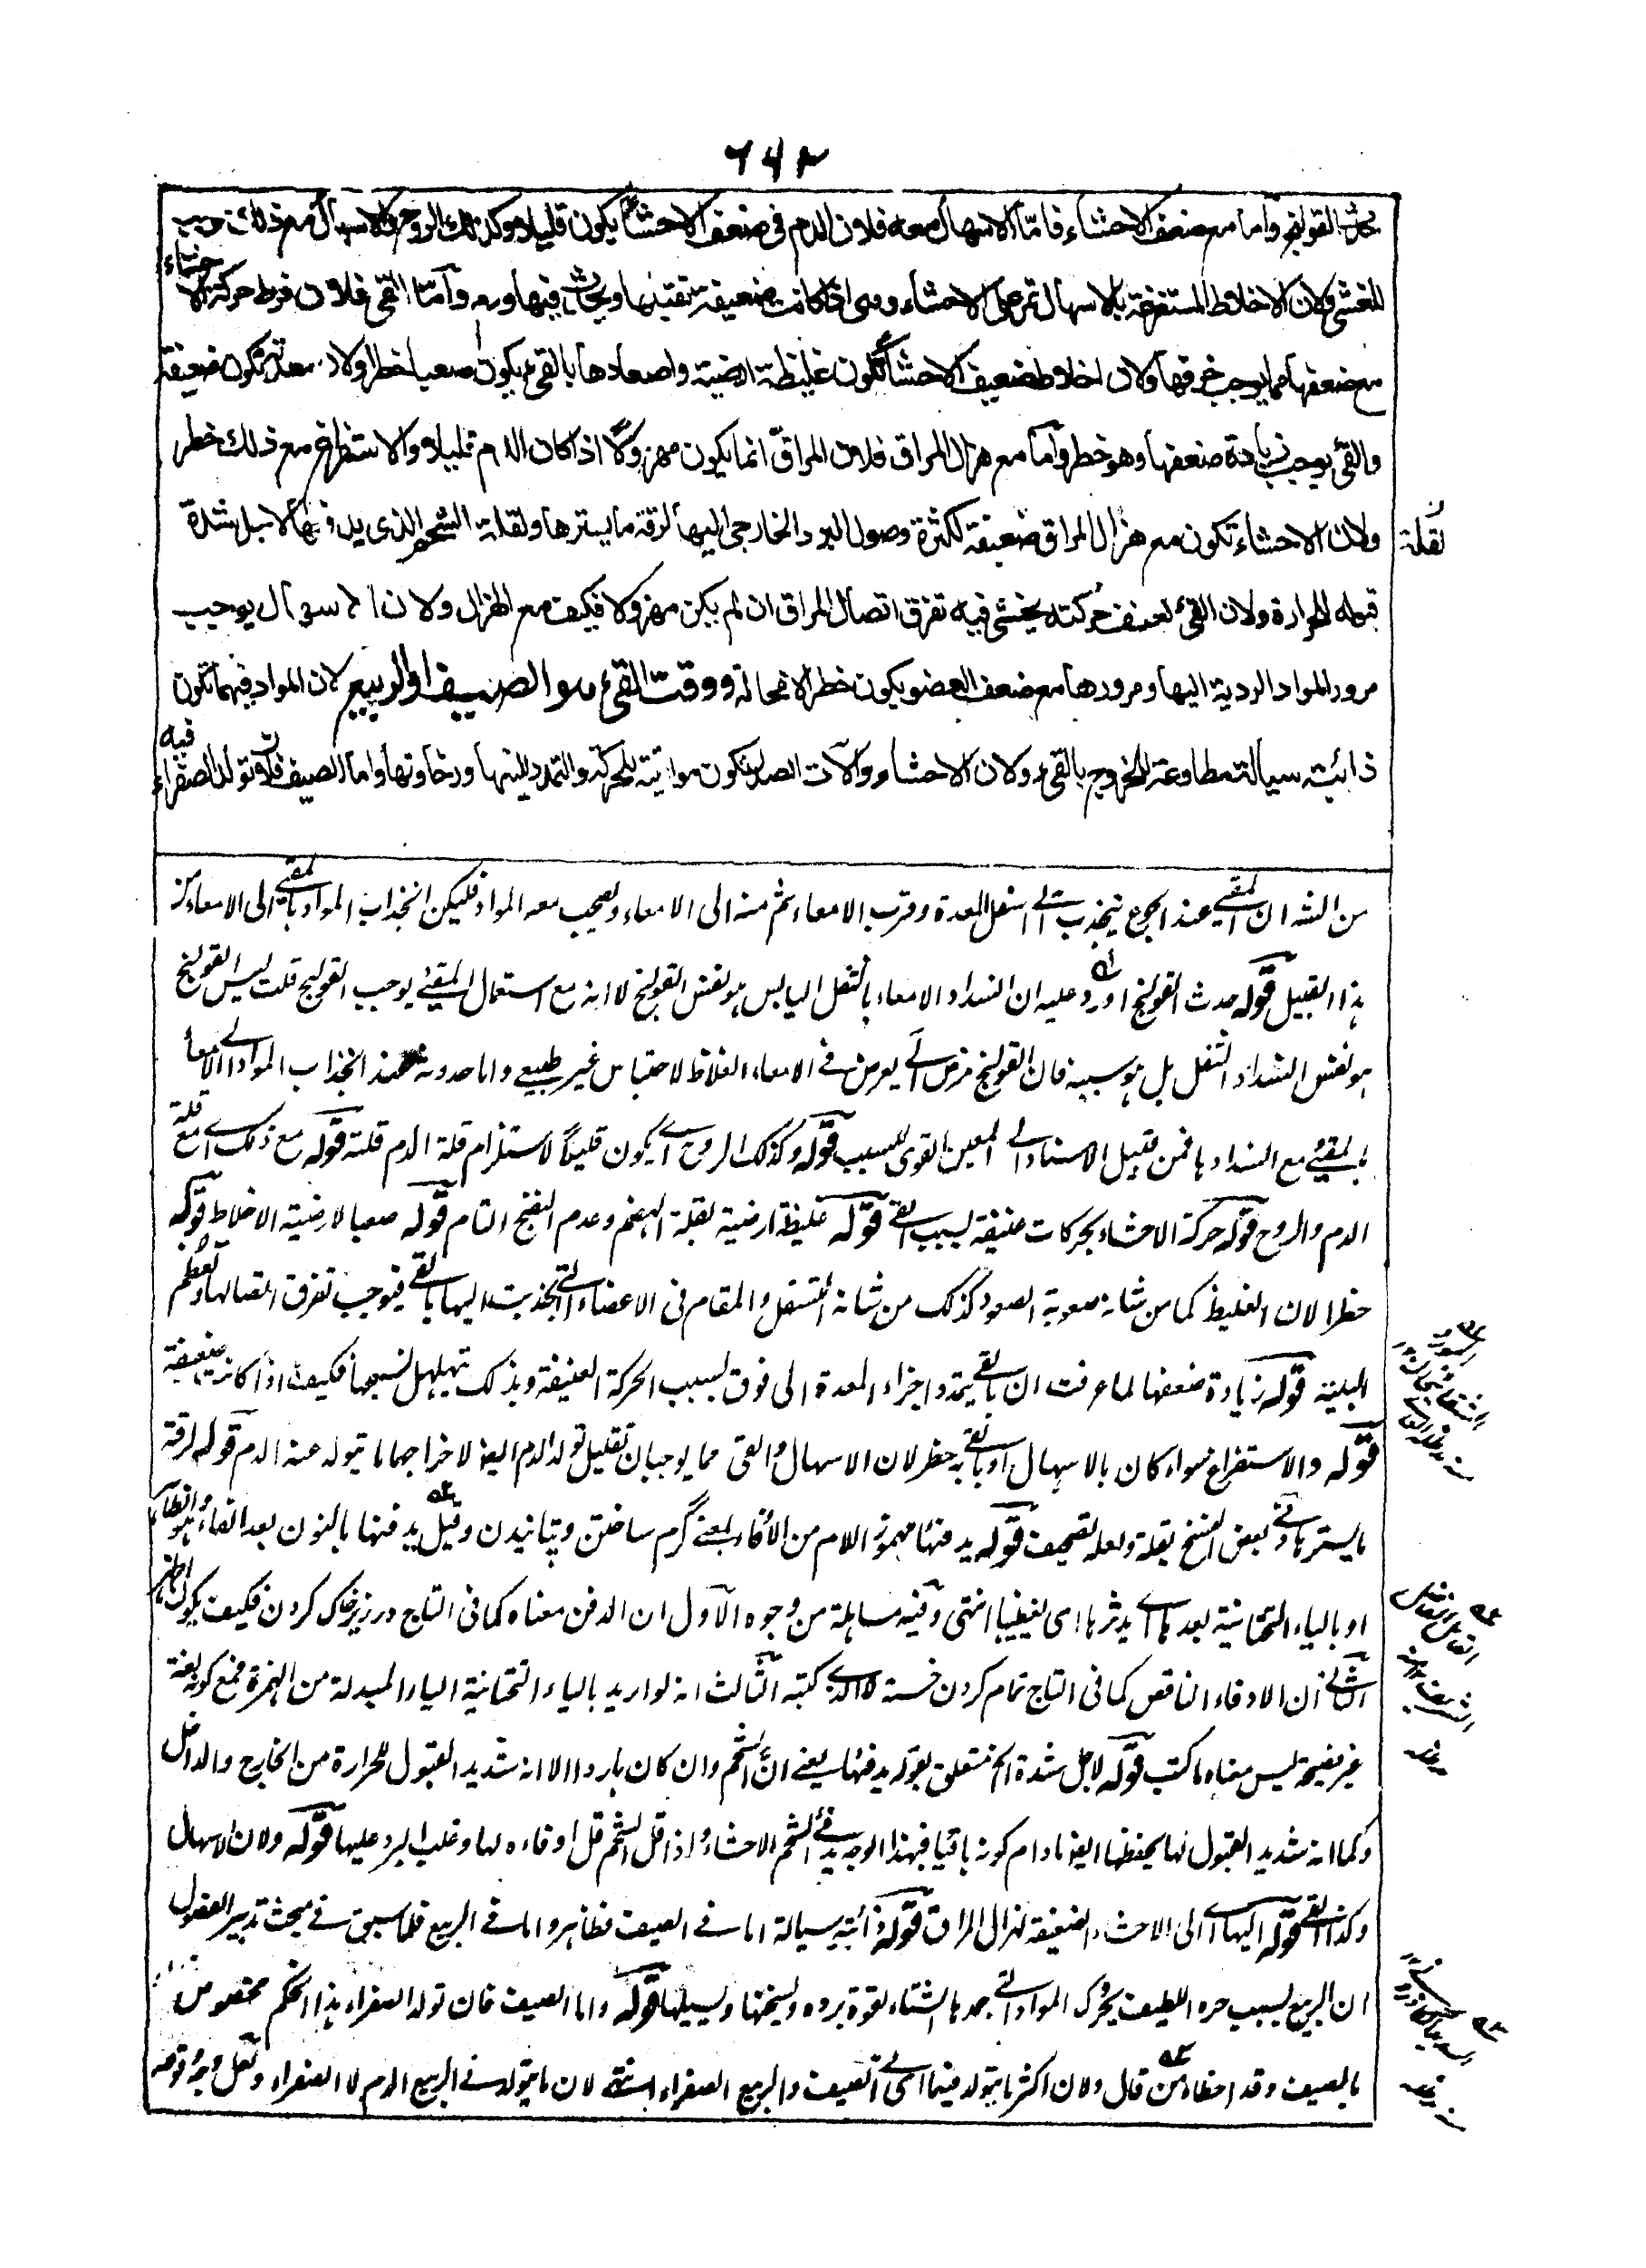 ٦٤٢
يحدث القولنج واما مع ضعف الاحشاء فامّا الاسهال معه فلان الدم فى ضعف الاحشاء يكون قليلا وكذلك الروح والاسهال مع ذلك موجب
للغشى ولان الاخلاط المستفرغة بالاسهال تمر على الاحشاء وهى اذا كانت ضعيفة وامّا القئ فلان فرط حركة الاحشاء
مع ضعفها مما يوجب خرقها ولان اخلاط ضعيف الاحشاء تكون غليظة ارضية واصعادها بالقئ يكون صعبا خطرا ولان معدته تكون ضعيفة
والقئ يوجب زيادة ضعفها وهو خطر وامّا مع هزال المراق فلان المراق انما يكون مهزولا اذا كان الدم قليلا والاستفراغ مع ذلك خطر
ولان الاحشاء تكون مع هزال المراق ضعيفة لكثرة وصول البرد الخارجى اليها لرقة ما يسترها ولقلة الشحم الذى يدفئها لاجل شدة
لقلة ن
قبوله للحرارة ولان القئ لعنف حركته يخشى فيه تفرق اتصال المراق ان لم يكن مهزولا فكيف مع الهزال ولان الاسهال يوجب
مرور المواد الردية اليها ومرورها مع ضعف العضو يكون خطرا لا محالة ووقت القئ هو الصيف او الربيع لان المواد فيهما تكون
ذائبة سيالة مطاوعة للخروج بالقئ ولان الاحشاء والآت الصدر تكون مواتية للحركة والتمدد للينها ورخاوتها واما الصيف فلان تولد الصفراء فيه
من الشه ان المقيئ عند الجوع ينجذب الى اسفل المعدة وقرب الامعاء ثم منه الى الامعاء ويصحب معه المواد فليكن انجذاب المواد بالمقيئ الى الامعاء من
هذا القبيل قوله حدث القولنج اورد عليه ان انسداد الامعاء بالثفل اليابس هو نفس القولنج لا انه مع استعمال المقيئ يوجب القولنج قلت ليس القولنج
هو نفس انسداد الثفل بل هو سببه فان القولنج مرض آلى يعرض فى الامعاء الغلاظ لاحتباس غير طبيعى واما حدوثه عند انجذاب المواد الى الامعاء
بالمقيئ مع انسدادها فمن قبيل الاسناد الى المعين القوى للسبب قوله وكذلك الروح اى يكون قليلا لاستلزام قلة الدم قلته قوله مع ذلك اى مع قلة
الدم والروح قوله حركة الاحشاء بحركات عنيفة بسبب القئ قوله غليظة ارضية لقلة الهضم وعدم النضج التام قوله صعبا لارضية الاخلاط قوله
خطرا لان الغليظ كما من شانه صعوبة الصعود كذلك من شانه التسفل والمقام فى الاعضاء التى انجذبت اليها بالقئ فيوجب تفرق اتصالها وتعظم
البلية قوله زيادة ضعفها لما عرفت ان بالقئ يتمدد اجزاء المعدة الى فوق بسبب الحركة العنيفة وبذلك يتهلهل نسجها فكيف اذا كانت ضعيفة
قوله والاستفراغ سواء كان بالاسهال او بالقئ به خطر لان الاسهال والقئ مما يوجبان تقليل تولد الدم ايضا لاخراجهما ما يتولد عنه الدم قوله لرقة
ما يسترها وفى بعض النسخ بقلة ولعله تصحيف قوله يدفئها مهموز اللام من الادفاء بمعنى گرم ساختن وپتانيدن وقيل يدفنها بالنون بعد الفاء
او بالياء التحتانية بعدها اى يدثرها اى يغطيها انتهى وفيه مساهلة من وجوه الاول ان الدفن معناه كما فى التاج در زير خاك كردن فكيف يكون
الثانى ان الادفاء الناقص كما فى التاج تمام كردن خسته الثالث انه لو اريد بالياء التحتانية الياء المبدلة من الهمزة فمع كونه لغة
غير فصيحة ليس معناه ما كتب قوله لاجل شدة الخ متعلق بقوله يدفئها يعنى ان الشحم وان كان باردا الا انه شديد القبول للحرارة من الخارج والداخل
وكما انه شديد القبول لها يحفظها ايضا ما دام كونه باقيا فبهذا الوجه يدفئ الشحم الاحشاء واذا قل الشحم قل ادفاءه لها وغلب البرد عليها قوله ولان الاسهال
وكذا القئ قوله اليها اى الى الاحشاء الضعيفة لهزال المراق قوله ذائبة سيالة اما فى الصيف فظاهر واما فى الربيع فلما سبق فى مبحث تدبير الفصول
ان الربيع بسبب حره اللطيف يحرك المواد التى جمدها الشتاء لقوة برده ويسخنها ويسيلها قوله واما الصيف فان تولد الصفراء هذا الحكم مخصوص
بالصيف وقد اخطاء من قال ولان اكثر ما يتولد فيهما اى فى الصيف والربيع الصفراء انتهى لان ما يتولد فى الربيع الدم لا الصفراء ولعل وجه توهمه